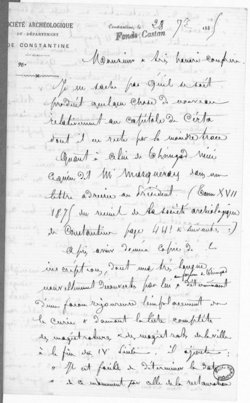 SOCIÉTÉ ARCHÉOLOGIQUE
DU DÉPARTEMENT
DE CONSTANTINE
Constantine, le 28 9bre 188
Fonds Castan
No
Monsieur & très honoré confrère
Je ne sache pas qu'il se soit
produit quelque chose de nouveau
relativement au Capitole de Cirta
dont il ne reste pas la moindre trace
Quant à celui de Thamgad voici
ce qu'en dit Mr Masqueray dans une
lettre adressée au Président (Tome XVII
187 du recueil de la société archéologique
de Constantine page 441 & suivantes :)
Après avoir donné copie de
inscription, dont une très longue
nouvellement découverte par lui à Thamgad & déterminant
d'une façon rigoureuse l'emplacement de
la curie & donnant la liste complète
des magistratures & des magistrats de la ville
à la fin du IV siècle, il ajoute :
« Il est facile de déterminer la date
« de ce monument par celle de la restauration